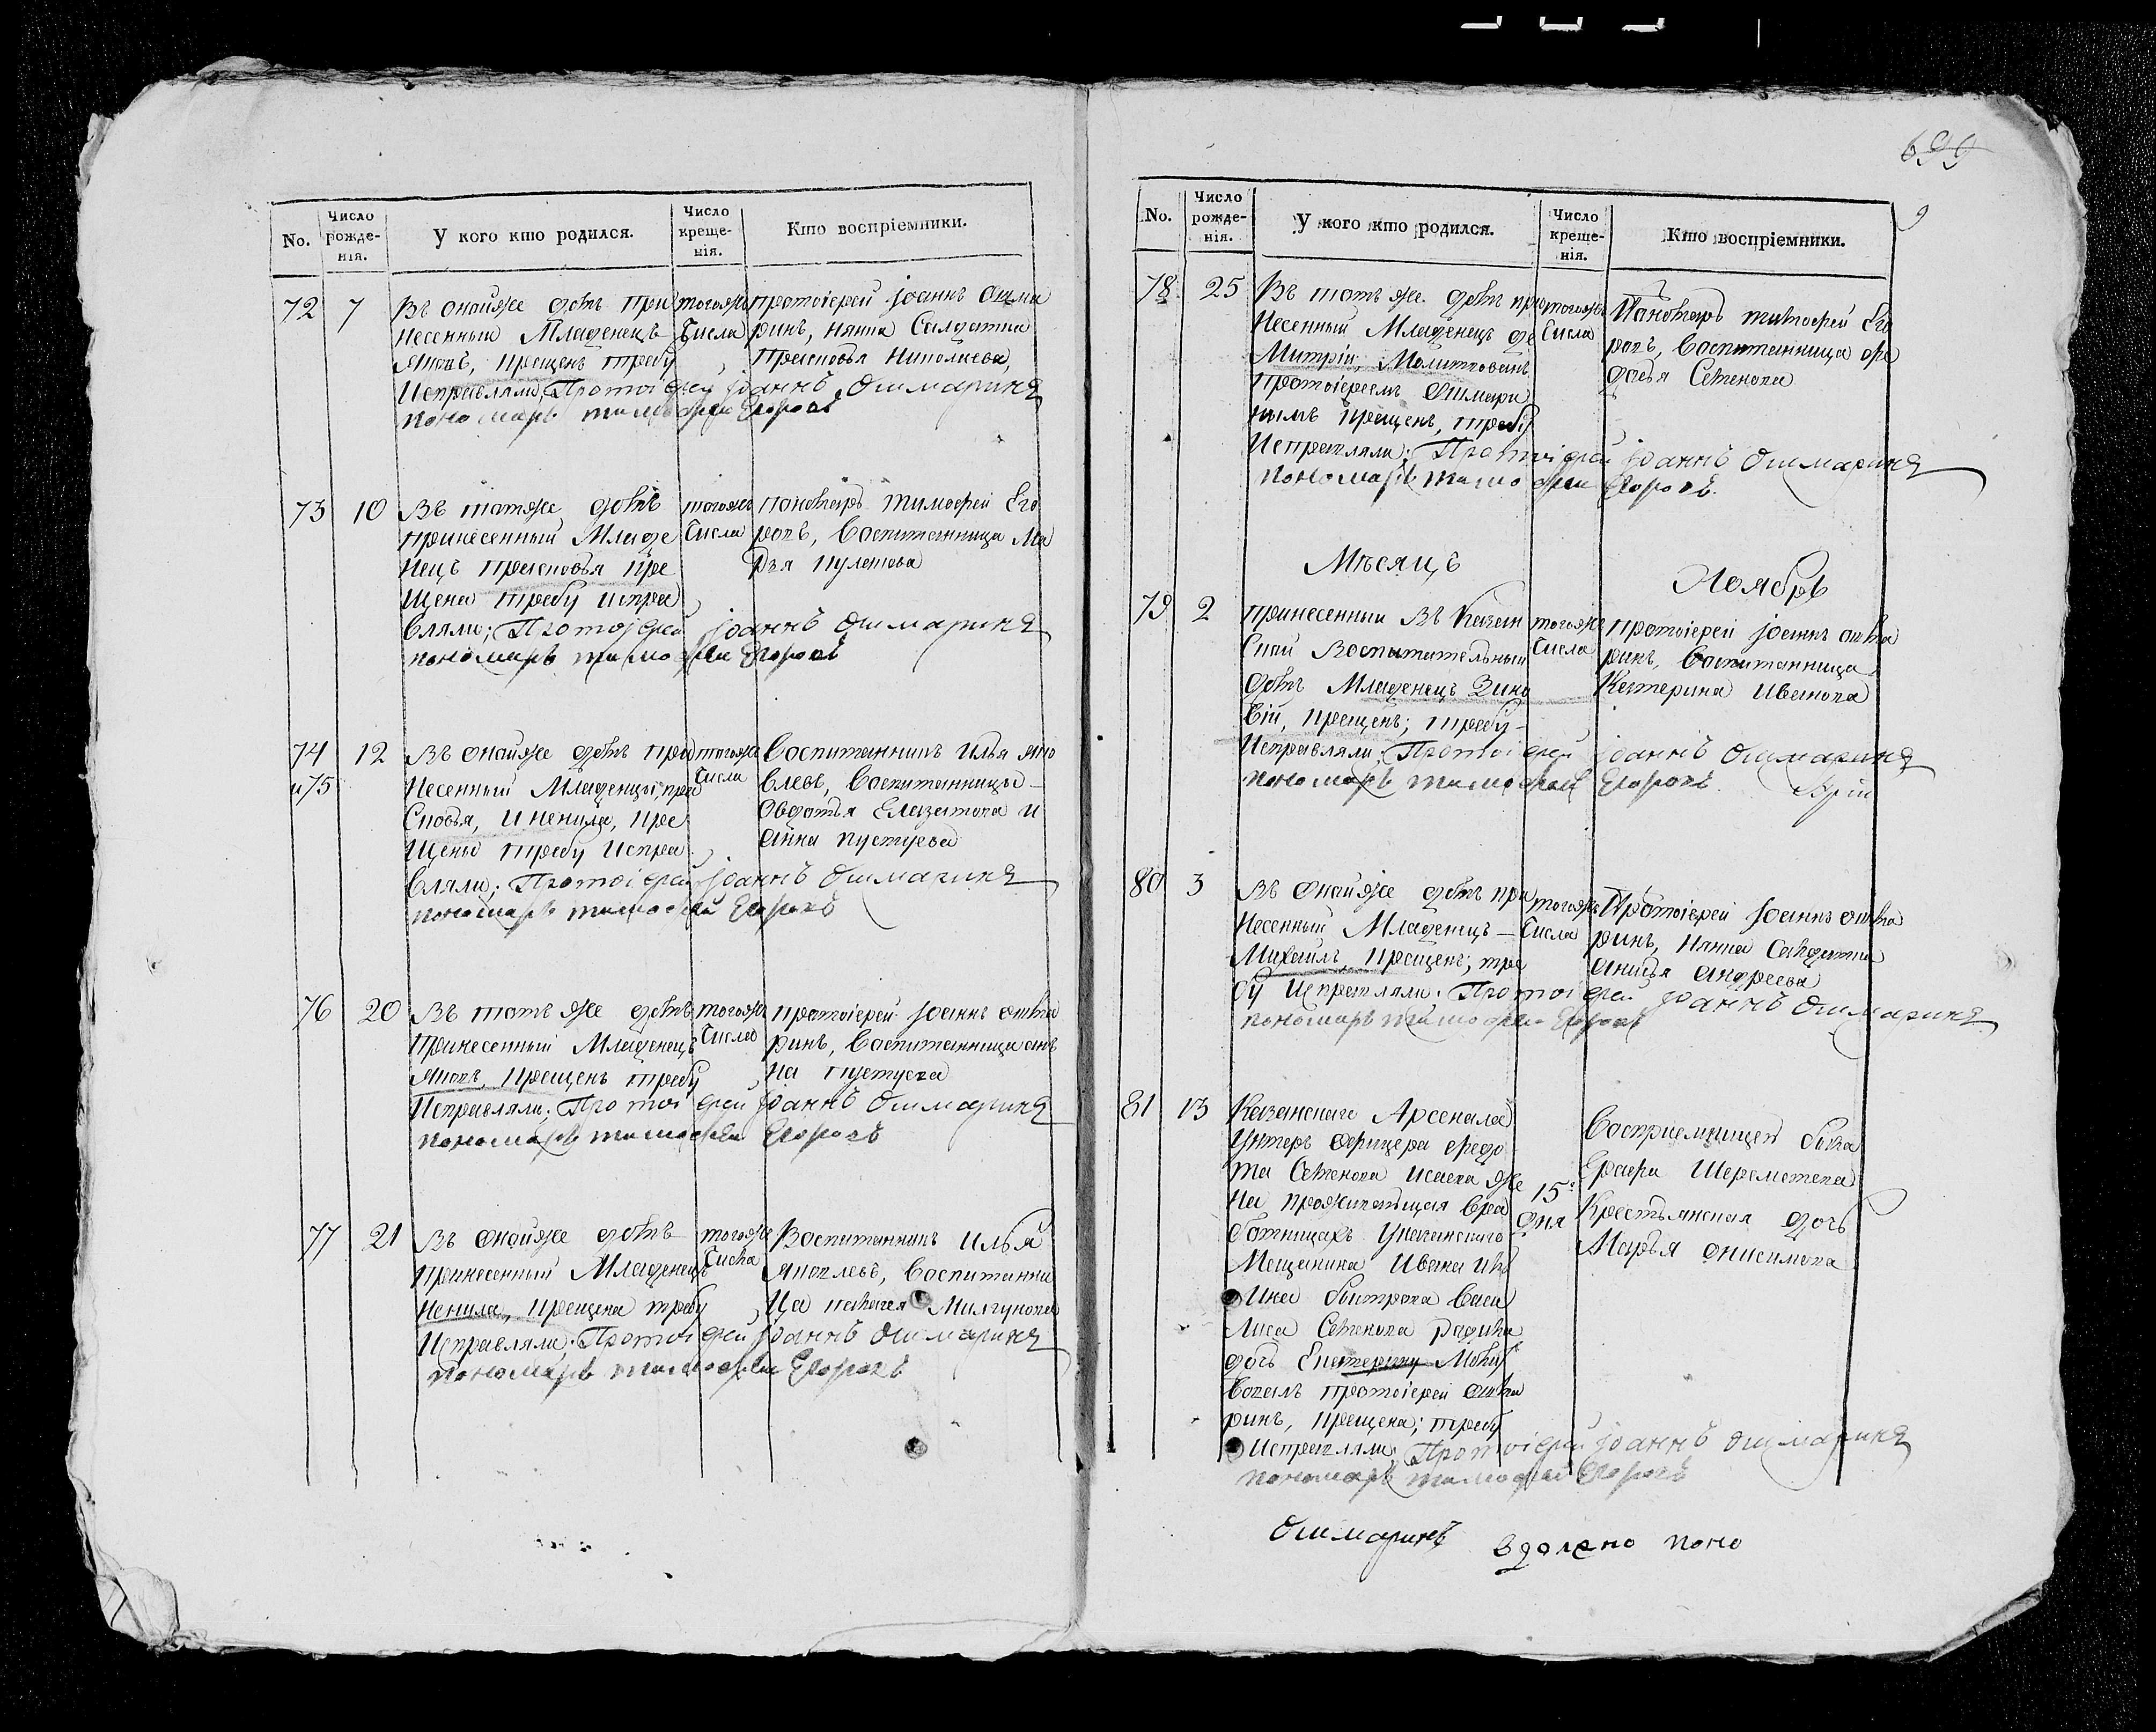 No.
Число рожде-нія.
У кого кто родился.
Число креще-нія.
Кто воспріемники.
72
7
Въ онойже домъ при
несенный Младенецъ
Яковъ, крещенъ требу
Исправляли; Протоіерей Іоаннъ Ошмаринъ
пономарь тимофей Егоровъ
тогожъ
Числа
протоіерей Іоаннъ Ошма
ринъ, нянка Салдатка
Прасковья Николаева,
73
10
Въ тотже домъ
принесенный Младе
нецъ Прасковья кре
щена требу испра
вляли; Протоіерей Іоаннъ Ошмаринъ
пономарь тимофей Егоровъ
тогожъ
Числа
пономарь тимофей Его
ровъ, Воспитанница Ма
рья
74
и 75
12
Въ онойже домъ при
несенный Младенцы, пра
сковья, и ненила, кре
щены требу испра
вляли; Протоіерей Іоаннъ Ошмаринъ
пономарь тимофей Егоровъ
тогожъ
Числа
Воспитанникъ Илья яко
влевъ, Воспитанницы
Овдотья Елизатова и
анна пустуева
76
20
Въ тотъ же домъ
принесенный Младенецъ
Яковъ, крещенъ требу
Исправляли; Протоіерей Іоаннъ Ошмаринъ
пономарь тимофей Егоровъ
тогожъ
Числа
протоіерей Іоаннъ ошма
ринъ, Воспитанница анъ
на пустуева
77
21
Въ онойже домъ
принесенный Младенецъ
Ненила, крещена требу
Исправляли; Протоіерей Іоаннъ Ошмаринъ
пономарь тимофей Егоровъ
тогоже
Числа
Воспитанникъ Илья
Яковлевъ, Воспитанни
ца
699
9
No.
Число рожде-нія.
У кого кто родился.
Число креще-нія.
Кто воспріемники.
78
25
Въ тотъ же домъ при
несенный Младенецъ ди
Митрій, Молитвованъ
протоіереемъ Ошмари
нымъ крещенъ, требу
Исправляли; Протоіерей Іоаннъ Ошмаринъ
пономарь тимофей Егоровъ.
тогожъ
Числа
Пономарь тимофей Его
ровъ, Воспитанница Фе
досья Семенова
Мѣсяцъ
Ноябрь
79
2
принесенный Въ Казан
ской Воспитательный
домъ Младенецъ Зино
вій, крещенъ; требу
Исправляли; Протоіерей Іоаннъ Ошмаринъ
пономарь тимофей Егоровъ.
тогожъ
Числа
протоіерей Іоаннъ ошма
ринъ, Воспитанница
Катерина Иванова
80
3
Въ онойже домъ при
несенный Младенецъ
Михаилъ, крещенъ; тре
бу Исправляли; Протоіерей Іоаннъ Ошмаринъ
пономарь тимофей Егоровъ
тогожъ
Числа
Протоіерей Іоаннъ ошма
ринъ, Нянка Салдатка
Анисья Андреева
81
13
Казанскаго Арсенала
Унтеръ Офицера Федо
та Семенова Исаева же
на проживающая вра
ботницахъ
Мещанина Ивана
Васи
лиса Семенова родила
дочь Екатерину Молит
вовалъ протоіерей ошма
ринъ, крещена; требу
Исправляли; Протоіерей Іоаннъ Ошмаринъ
пономарь тимофей Егоровъ
15.
дня
Восприемницей была
Крестьянская дочь
Марья онисимова
Ошмаринъ поно